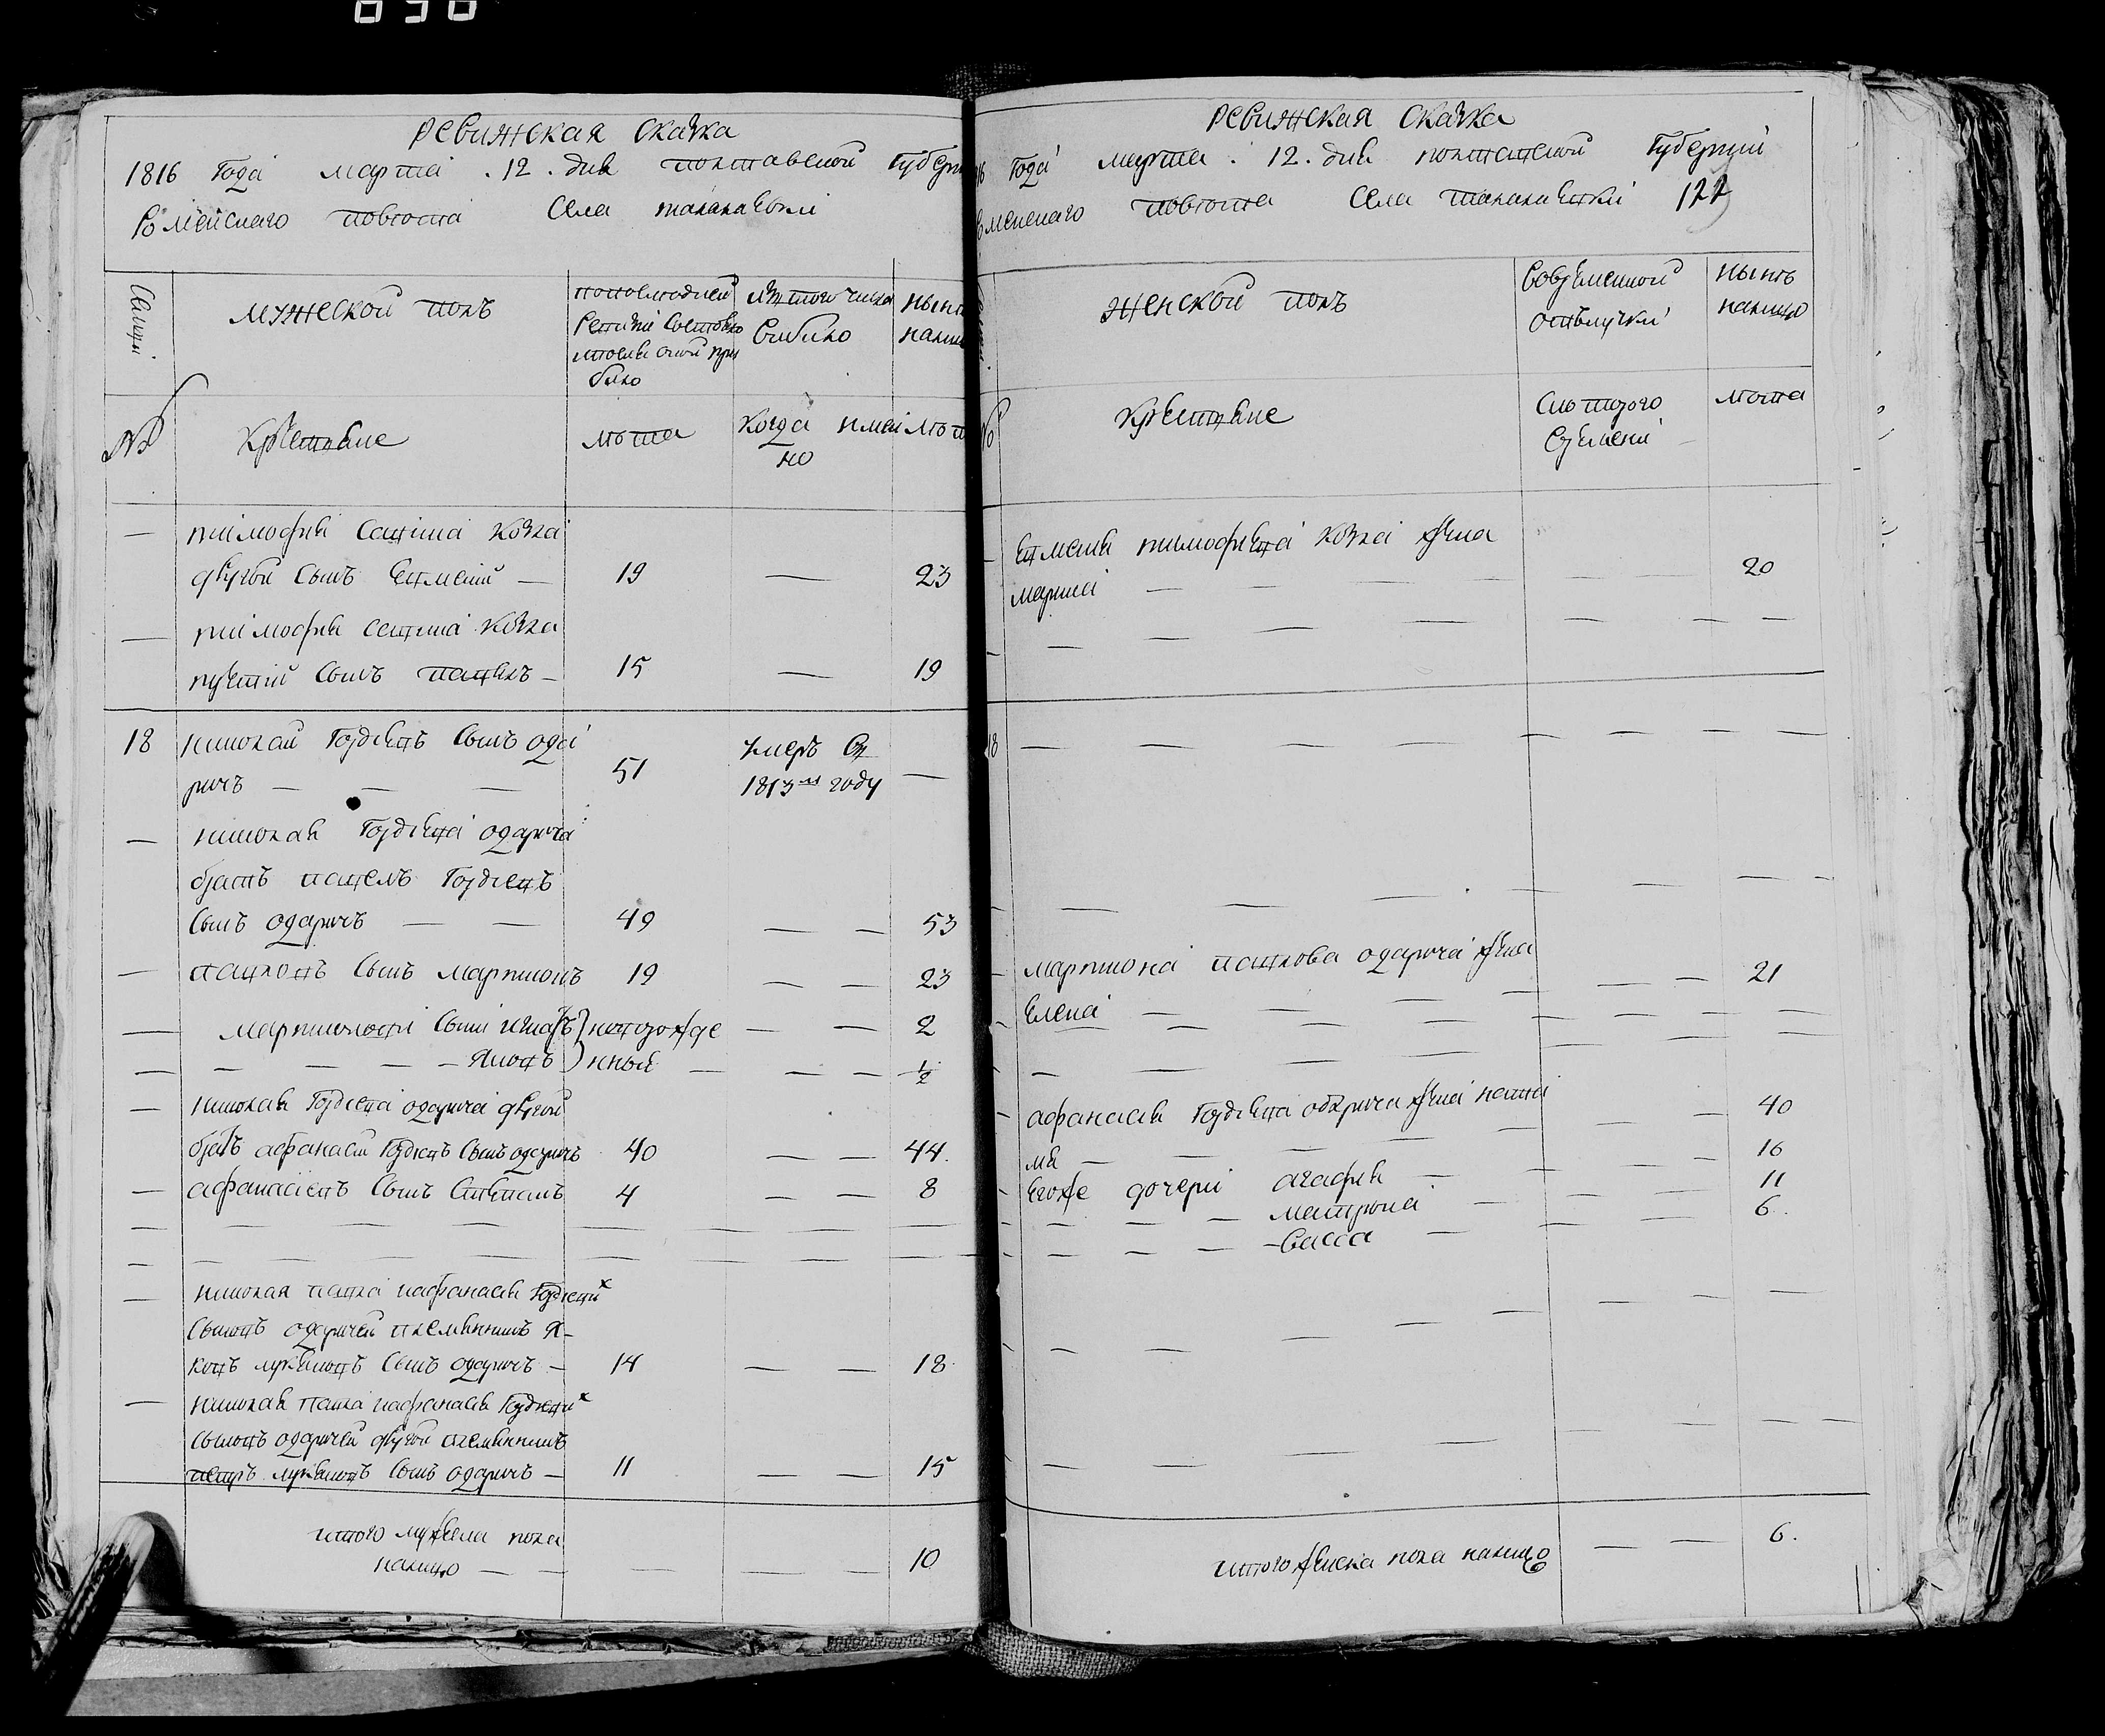 030
РЕВИЖСКАЯ СКАЗКА
1816 Года марта . 12 . дня полтавской Губерн
Роменского повѣта Села талалаевки
Семьи
МУЖЕСКОЙ ПОЛЪ
попослѣдней Ревизіи Состояло и послѣ оной прибыло
изтого числа выбыло
Нынѣ налицо
№
Крѣстьяне
лѣта
Когда имянно
лѣта
— тимофѣя Саввина Козла
другой Сынъ Евмений — 19 — 23
— тимофѣя Саввина Козла
третій Сынъ павелъ — 15 — 19
18 николай Гордѣевъ Сынъ ода
ричъ — — — 51 умеръ въ 1813м году —
— николая Гордѣева одарича
братъ павелъ Гордѣевъ
Сынъ одаричъ — — 49 — — 53
— павловъ Сынъ мартинъ 19 — — 23
— мартиновы Сыны игнатъ } новорожде — — 2
— — — — — яковъ } нный — — — 1/2
— николая Гордѣева одарича другой
братъ афанасій Гордѣевъ Сынъ одаричъ 40 — — 44.
— афанасіевъ Сынъ Степанъ 4 — — 8
— николая павла иафанасія Гордѣевыхъ
Сыновъ одаричей племянникъ я-
ковъ лукяновъ Сынъ одаричъ — 14 — — 18.
— николая павла иафанасія Гордѣевыхъ
Сыновъ одаричей другой племянникъ
петръ лукяновъ Сынъ одаричъ — 11 — — 15
итого мужеска пола
налицо — — — — — 10
РЕВИЖСКАЯ СКАЗКА
16 Года марта . 12 . дня полтавской Губернии
оменского повѣта Села талалаевки 122
ЖЕНСКОЙ ПОЛЪ
Вовременной отлучки
Нынѣ налицо
№
Крѣстьяне
Скотораго времени
лѣта
— Евмения тимофѣева Козла жена
мария — — — — — 20
18 — — — — — — —
— мартина павлова одарича жена
Елена — — — — — 21
— афанасия Гордѣева одарича жена ната
лия — — — — 40
— Егоже дочери агафия — — — 16
— — — — матрона — — — 11
— — — — васса — — — 6.
итого женска пола налицо — — 6.